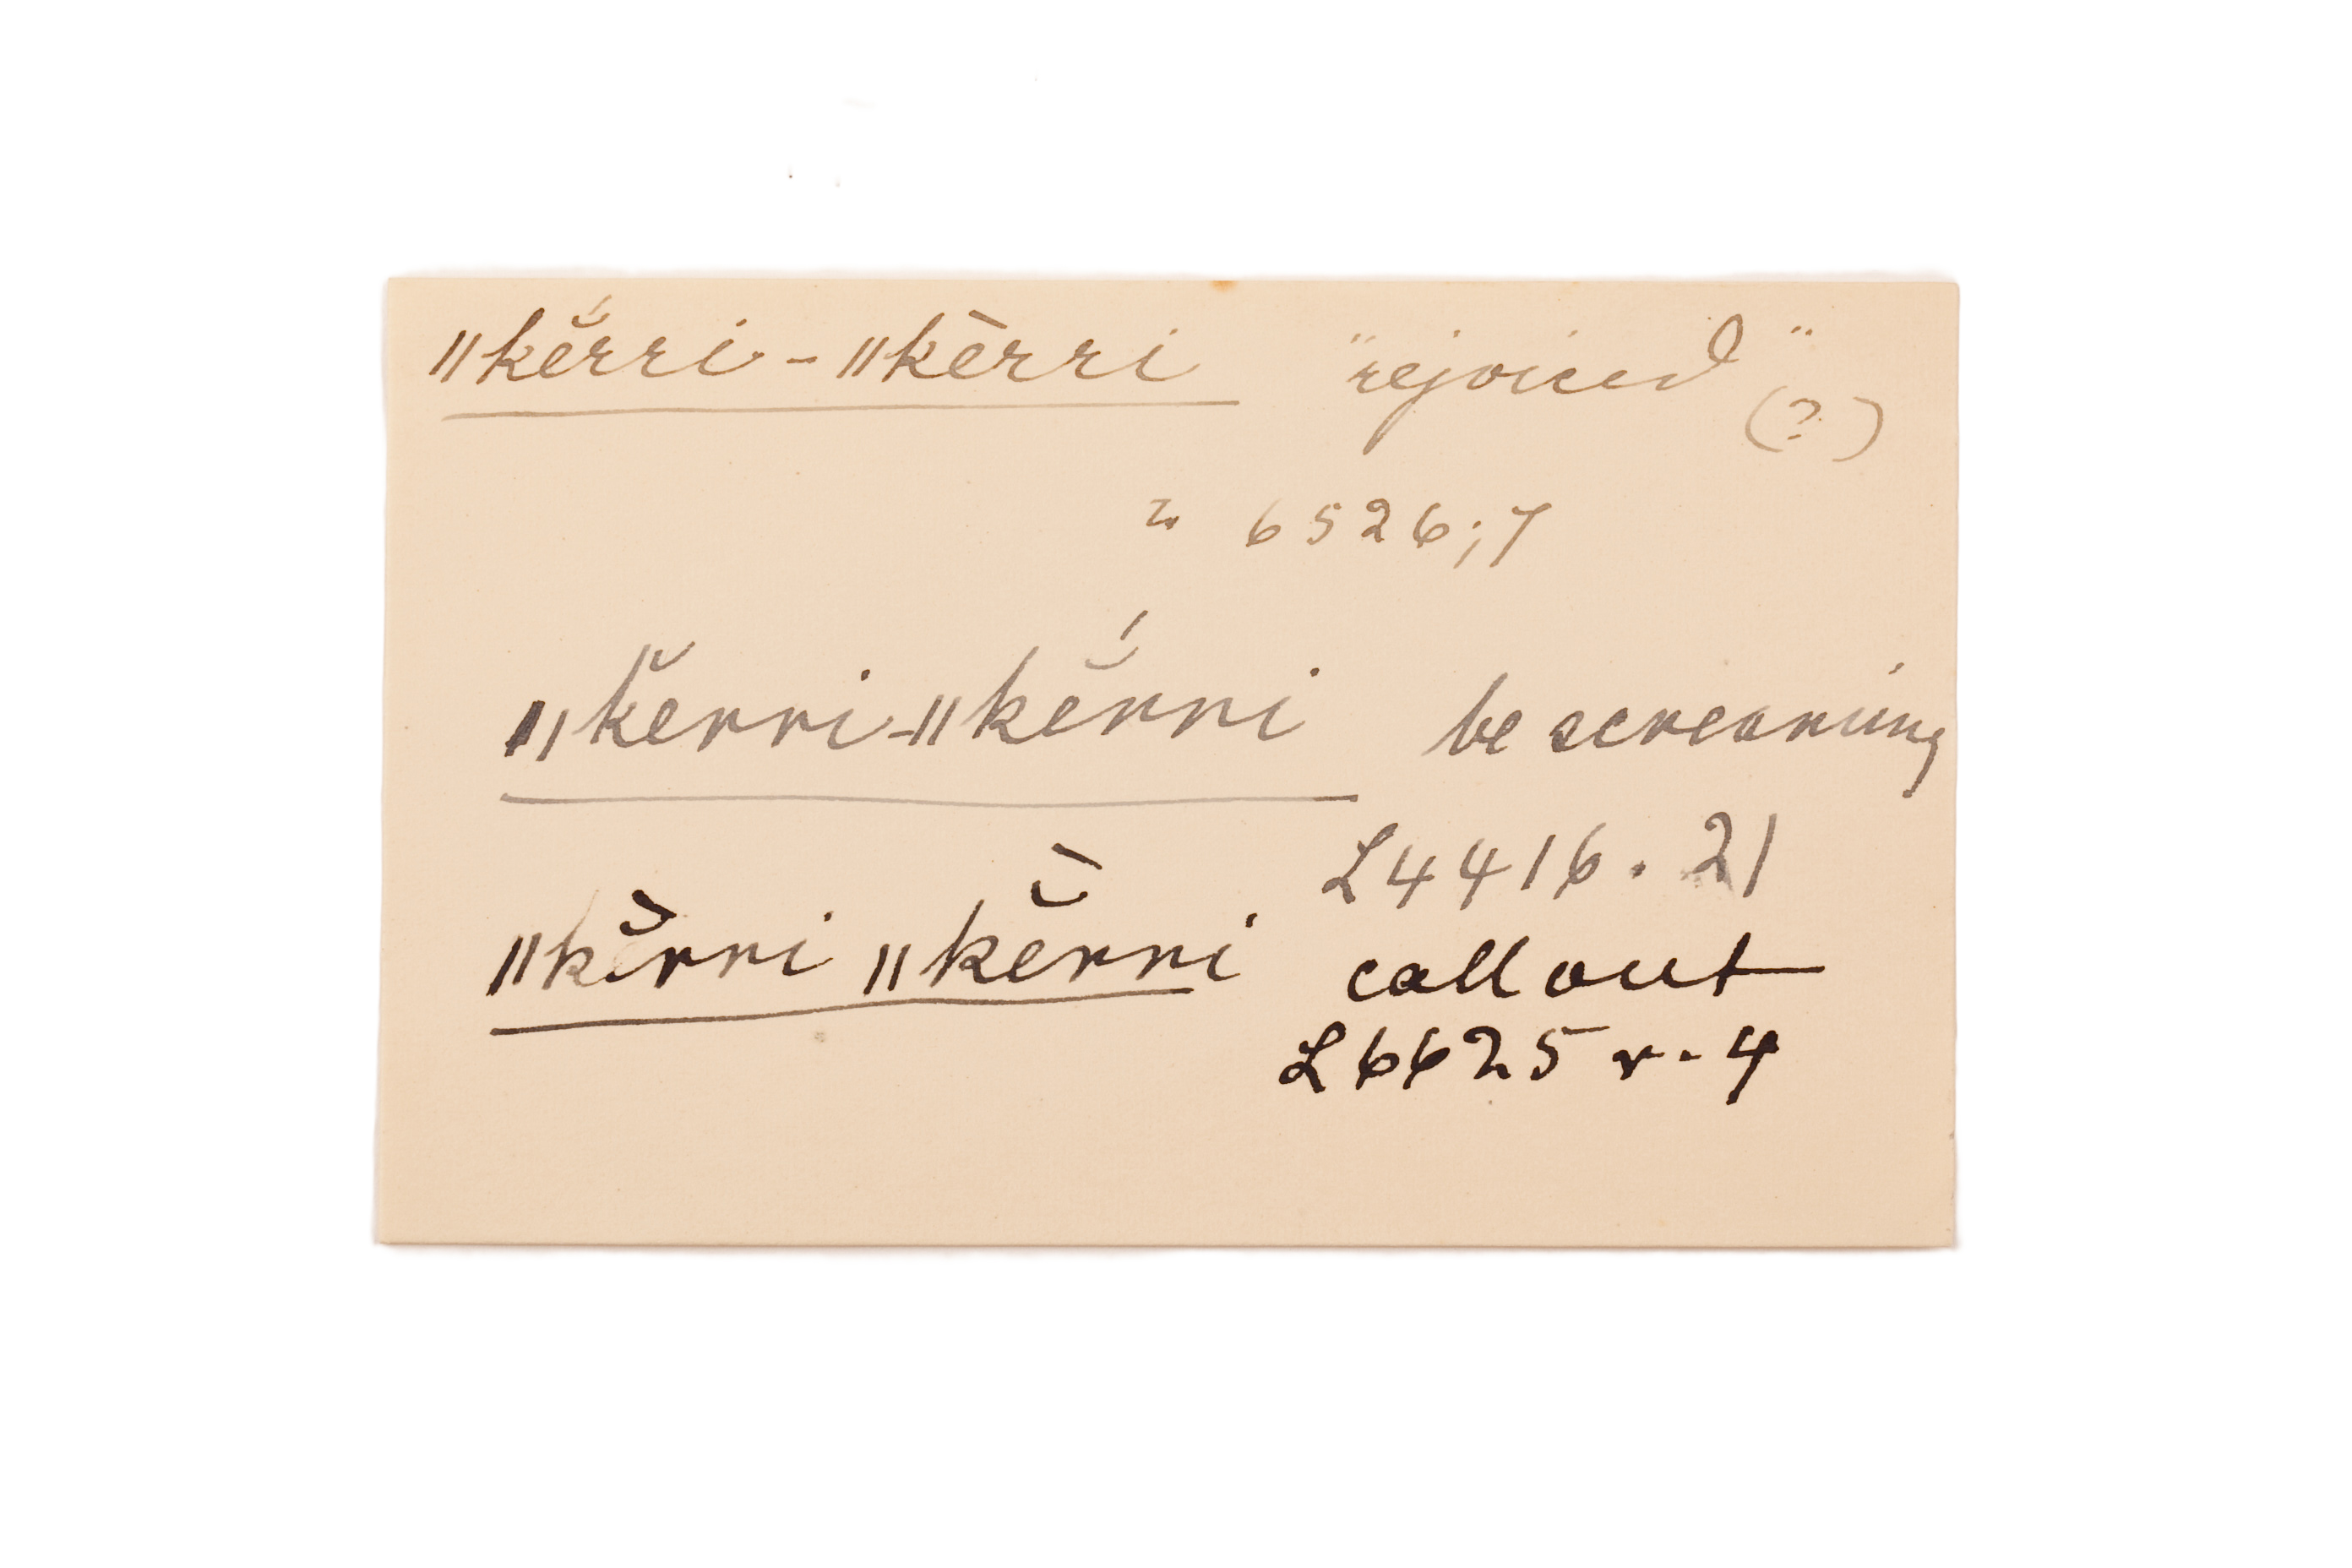 ǁkĕ́rri-ǁkèrri "rejoiced" (?)
L. 6526;7
ǁkĕrri-ǁkĕ́rri be screaming
L4416. 21
ǁkĕ̀rri ǁkĕ̀rri call out
L6625 r. 4